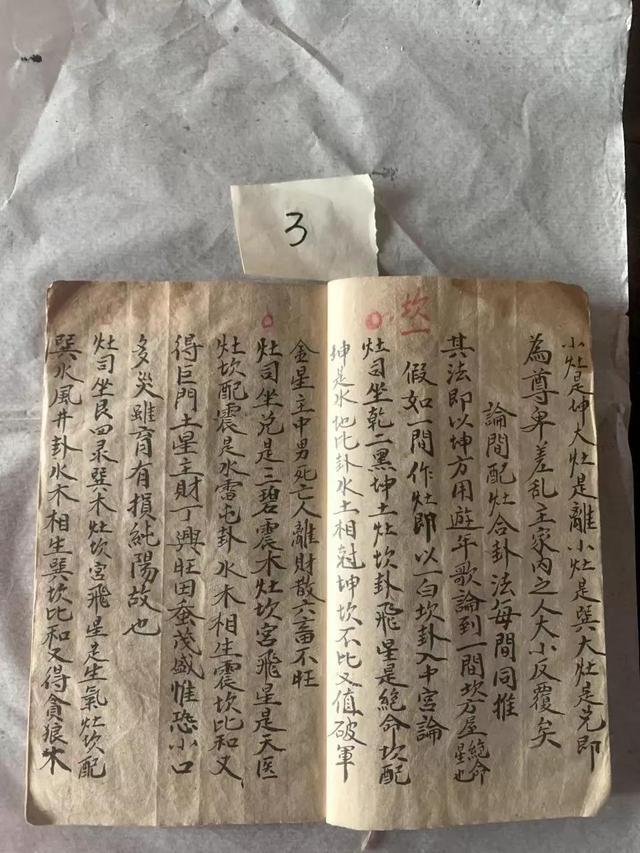 3
小灶是坤大灶是離小灶是巽大灶是兄即
為尊卑差乱主家內之人大小反覆矣
論間配灶合卦法每間同推
其法即以坤方用遊年歌論到一間坎方屋絕命星也
假如一間作灶即以一白坎卦入中宮論
坎一
灶司坐乾二黑坤土灶坎卦飛星是絕命坎配
坤是水地比卦水土相尅坤坎不比又值破軍
金星主中男死亡人離財散六畜不旺
灶司坐兌是三碧震木灶坎宮飛星是天医
灶坎配震是水雷屯卦水木相生震坎比和又
得巨門土星主財丁興旺田蚕茂盛惟恐小口
多災雖育有損純陽故也
灶司坐艮四录巽木灶坎宮飛星是生氣灶坎配
巽水風井卦水木相生巽坎比和又得貪狼木